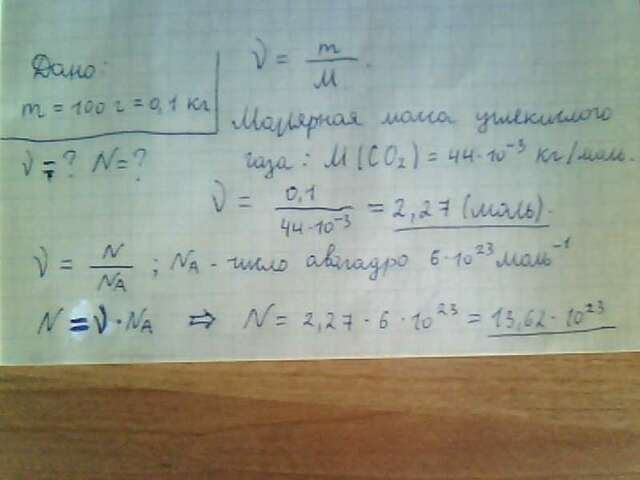 Дано:
m = 100 г = 0,1 кг
ν = ? N = ?
ν = m/M.
Молярная масса углекислого
газа: M(CO₂) = 44·10⁻³ кг/моль.
ν = 0,1/44·10⁻³ = 2,27 (моль).
ν = N/NA; NA - число авагадро 6·10²³ моль⁻¹
N = ν·NA ⇒ N = 2,27·6·10²³ = 13,62·10²³